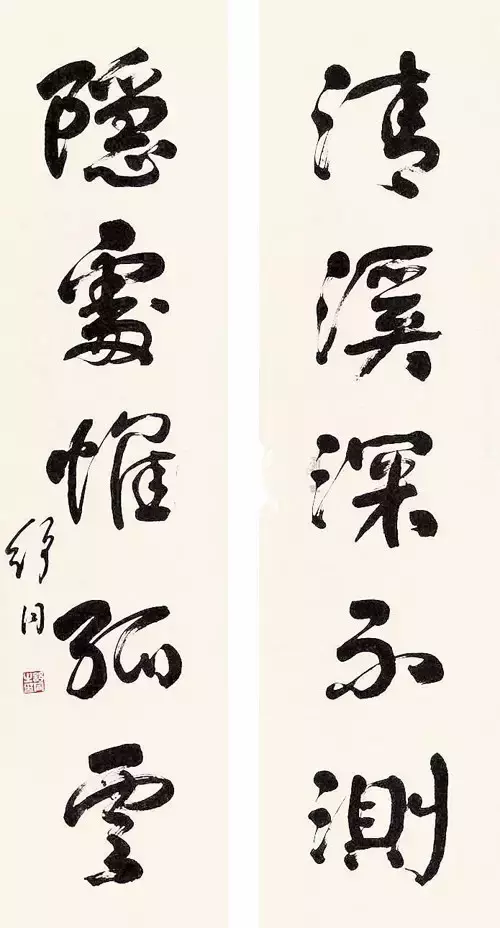 清溪深不測
隱處惟孤雲
舒同